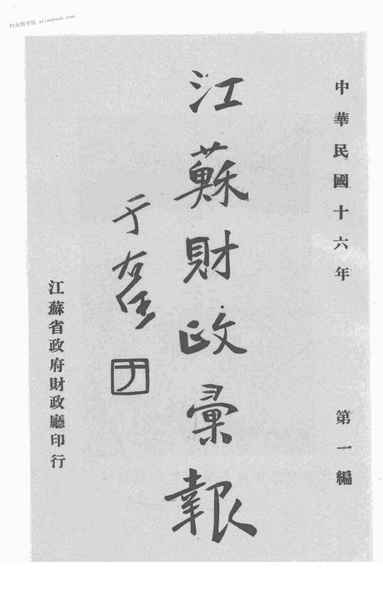 中華民國十六年
第一編
江蘇財政彙報
于右任
江蘇省政府財政廳印行